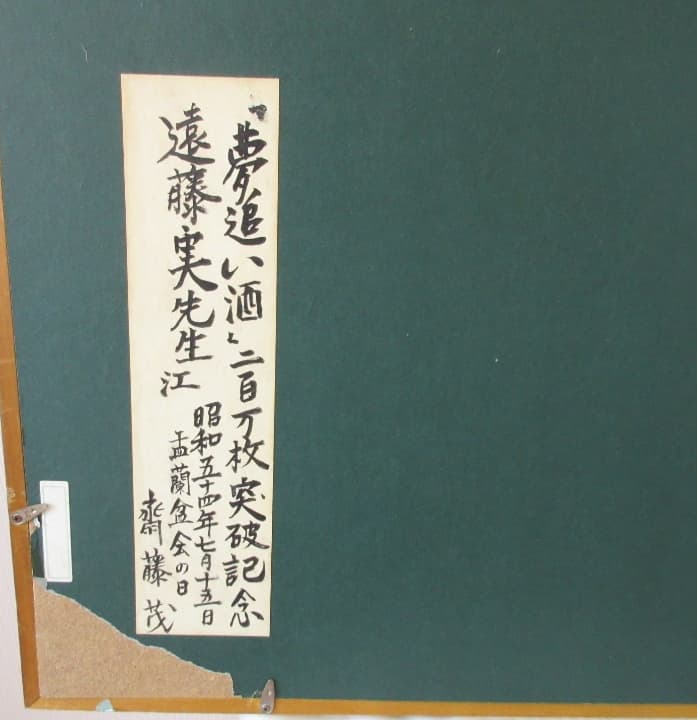 「夢追い酒」二百万枚突破記念
遠藤実先生江
昭和五十四年七月十五日
盂蘭盆会の日
齋藤茂